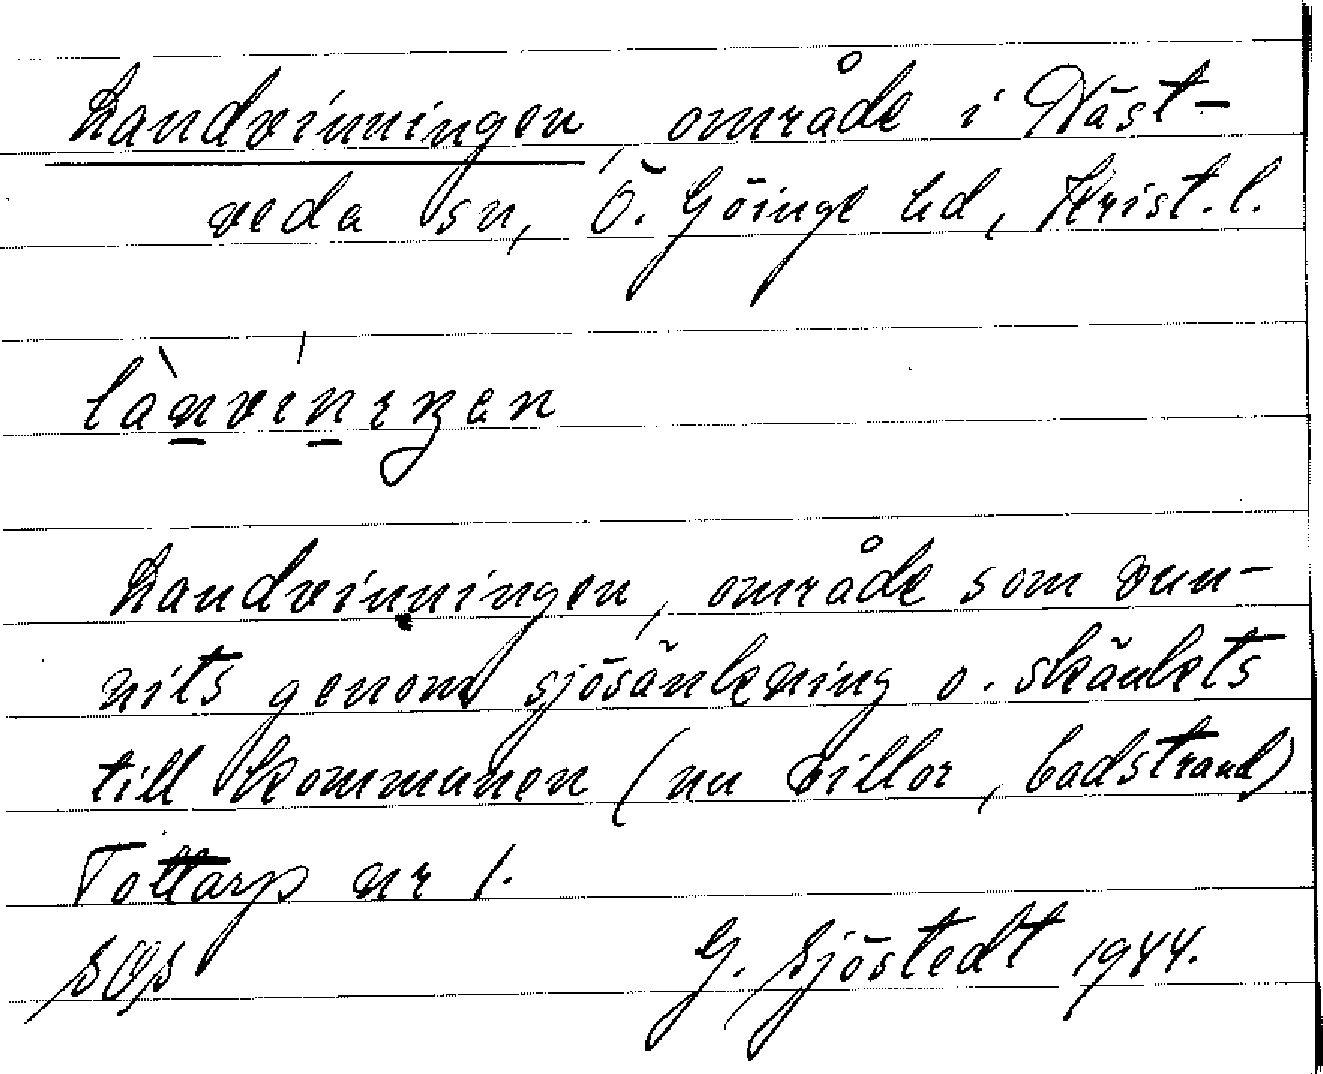 Landvinningen, område i Näst-
veda sn, Ö. Göinge hd, Krist. l.
lànvínıŋen
Landvinningen, område som vun-
nits genom sjösänkning o. skänkts
till kommunen (nu villor, badstrand)
Tottarp nr 1.
G. Sjöstedt 1944.